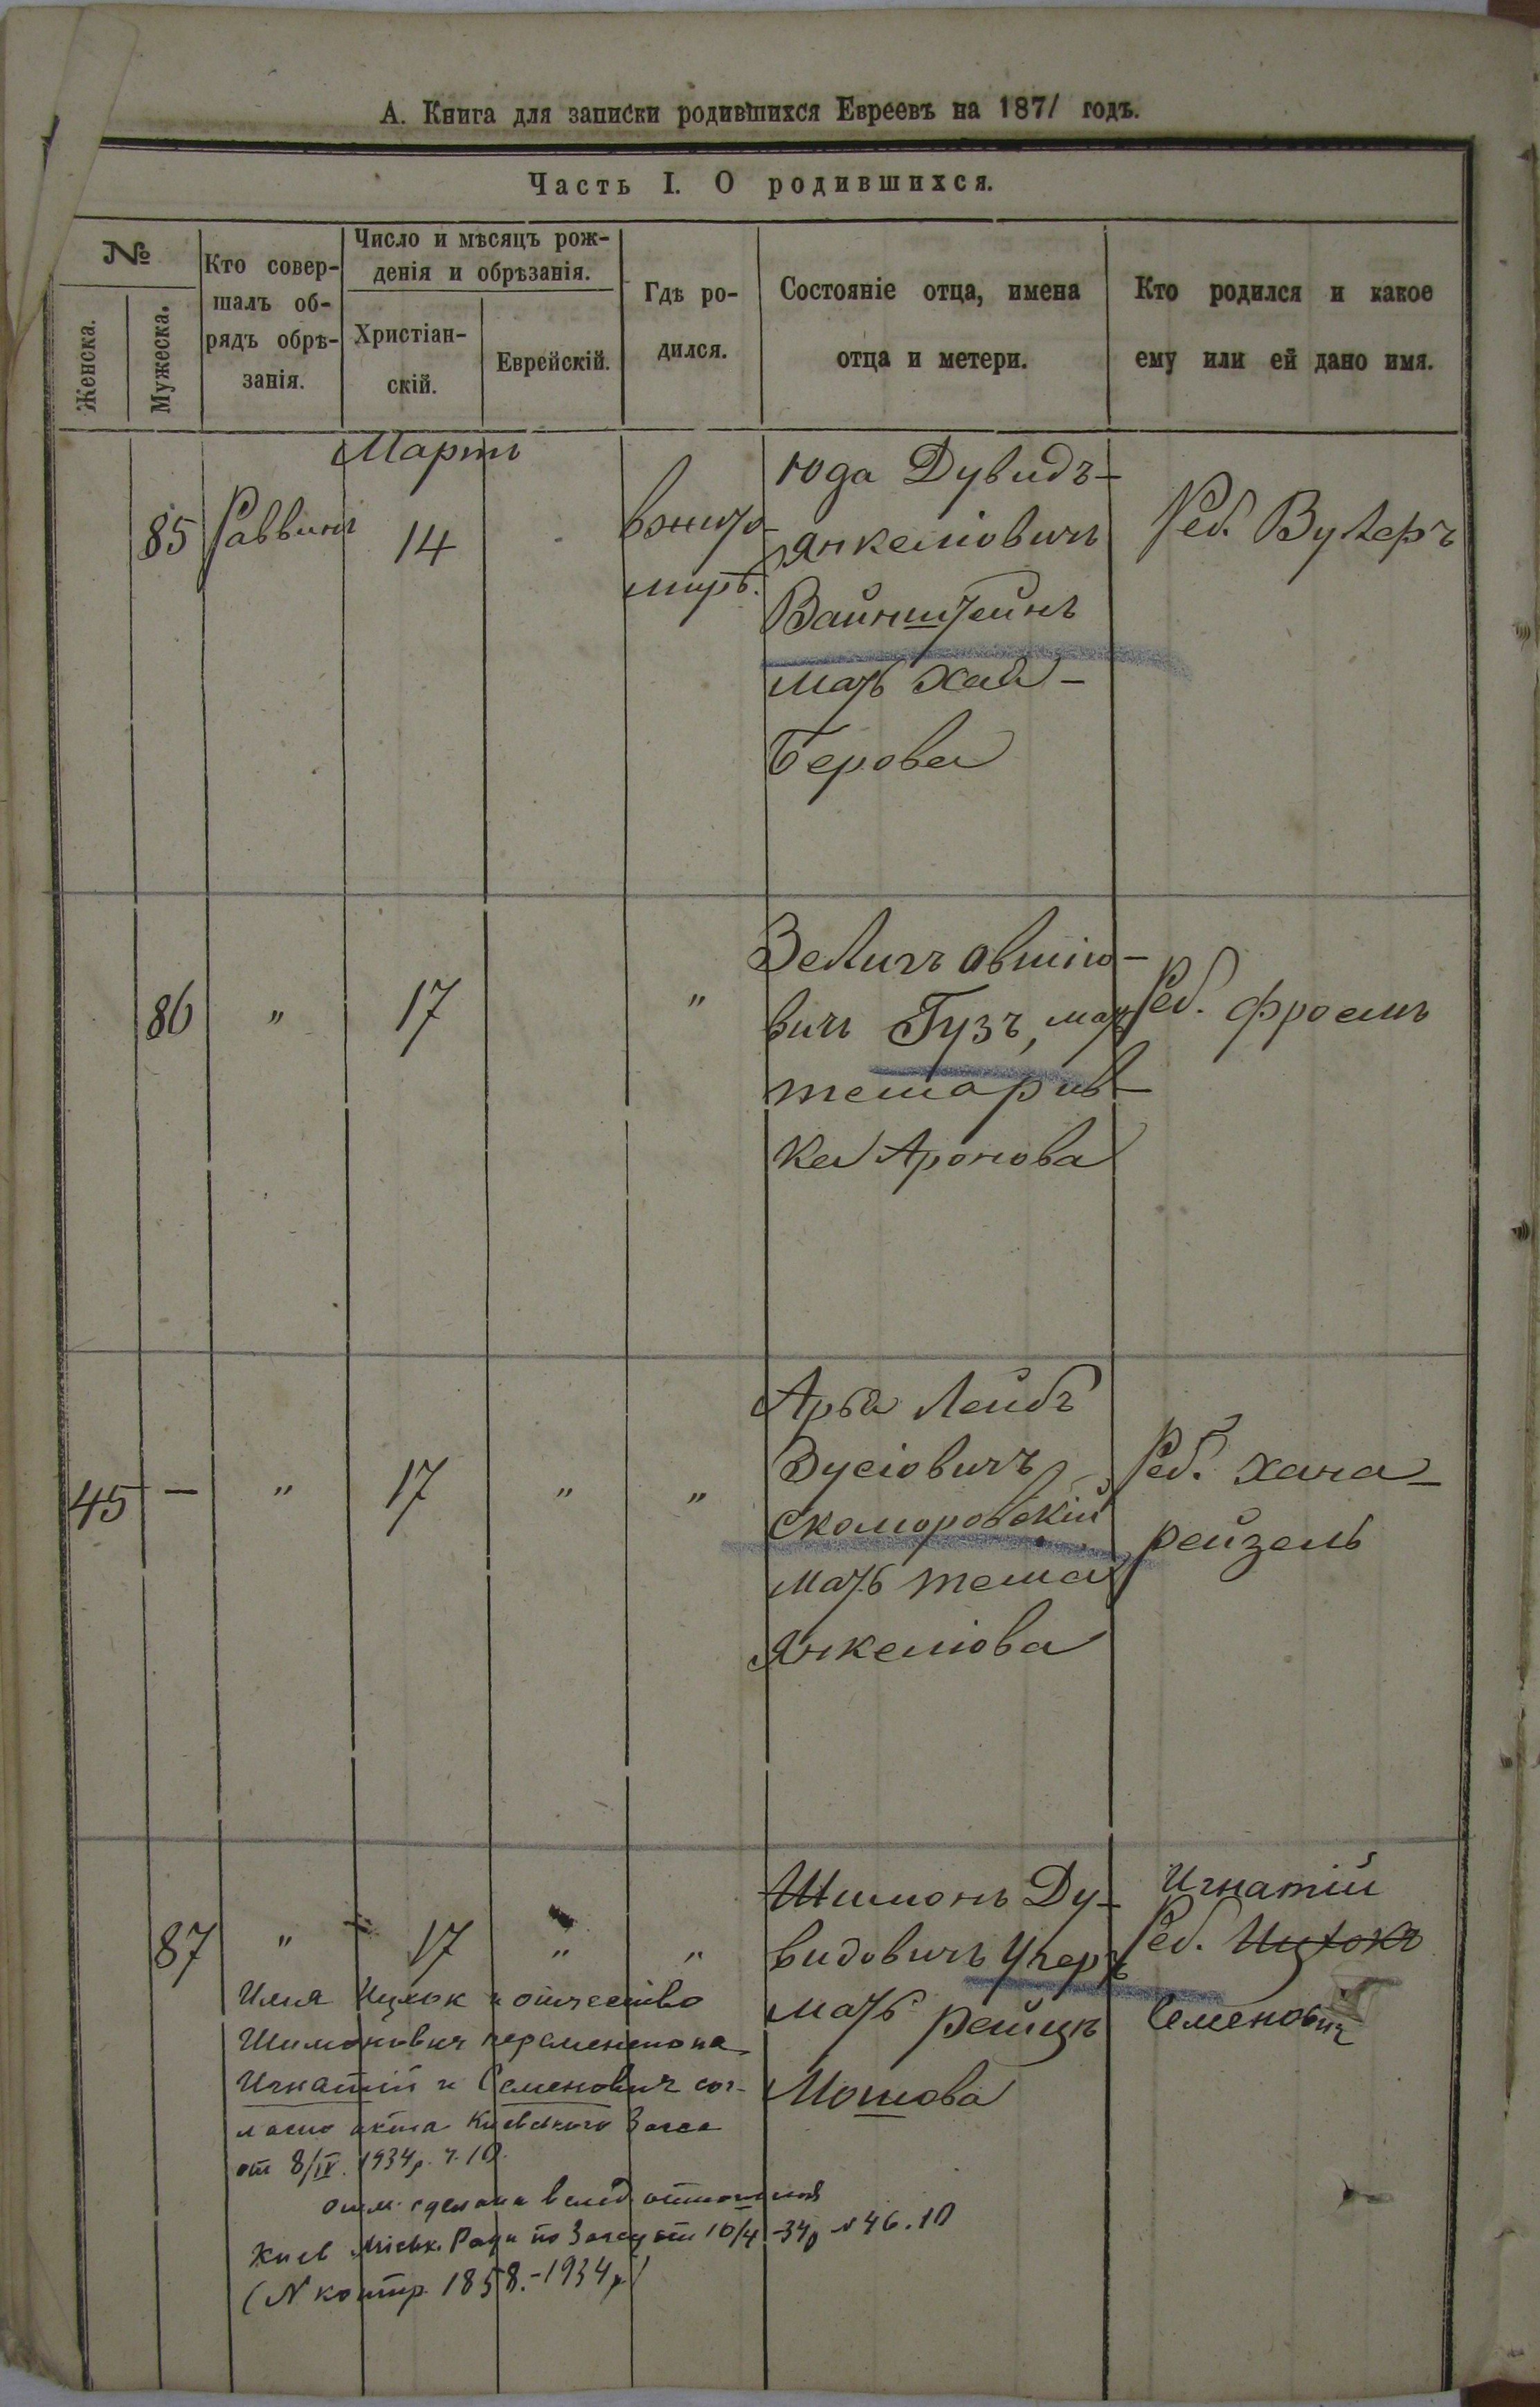 А. Книга для записки родившихся Евреевъ на 1871 годъ.
Часть I. О родившихся.
№
Женска.
Мужеска.
Кто совер-
шалъ об-
рядъ обрѣ-
занія.
Число и мѣсяцъ рож-
денія и обрѣзанія.
Христіан-
скій.
Еврейскій.
Гдѣ ро-
дился.
Состояніе отца, имена
отца и метери.
Кто родился и какое
ему или ей дано имя.
Мартъ
85 Раввинъ 14
вжито-
мирѣ.
Юда Дувидъ-
Янкелiовичъ
Вайнштейнъ
мать Хая-
Берова
Реб. Вулеръ
86 " 17 "
Зелигъ
вичъ Гузъ, мать
ка Аронова
Реб. Фроемъ
45 — " 17 " "
Арья Лейбъ
Зусiовичъ
Скоморовскiй
мать
Янкелiова
Реб. Хана-
рейзель
87 " 17 " "
Шимонъ Ду-
видовичъ
мать Рейцъ
Мошова
Игнатiй
Реб. Ицхокъ
Семенович
Имя Ицхок и отчество
Шимонович переменено на
Игнатiй и Семенович сог-
ласно акта Киевского Загса
от 8/IV. 1934р. ч. 10.
отм. сделана вслед отношения
Киев Міськ. Ради по Загсу от 10/4 -34р №46.10
(N контр. 1858.-1934р)